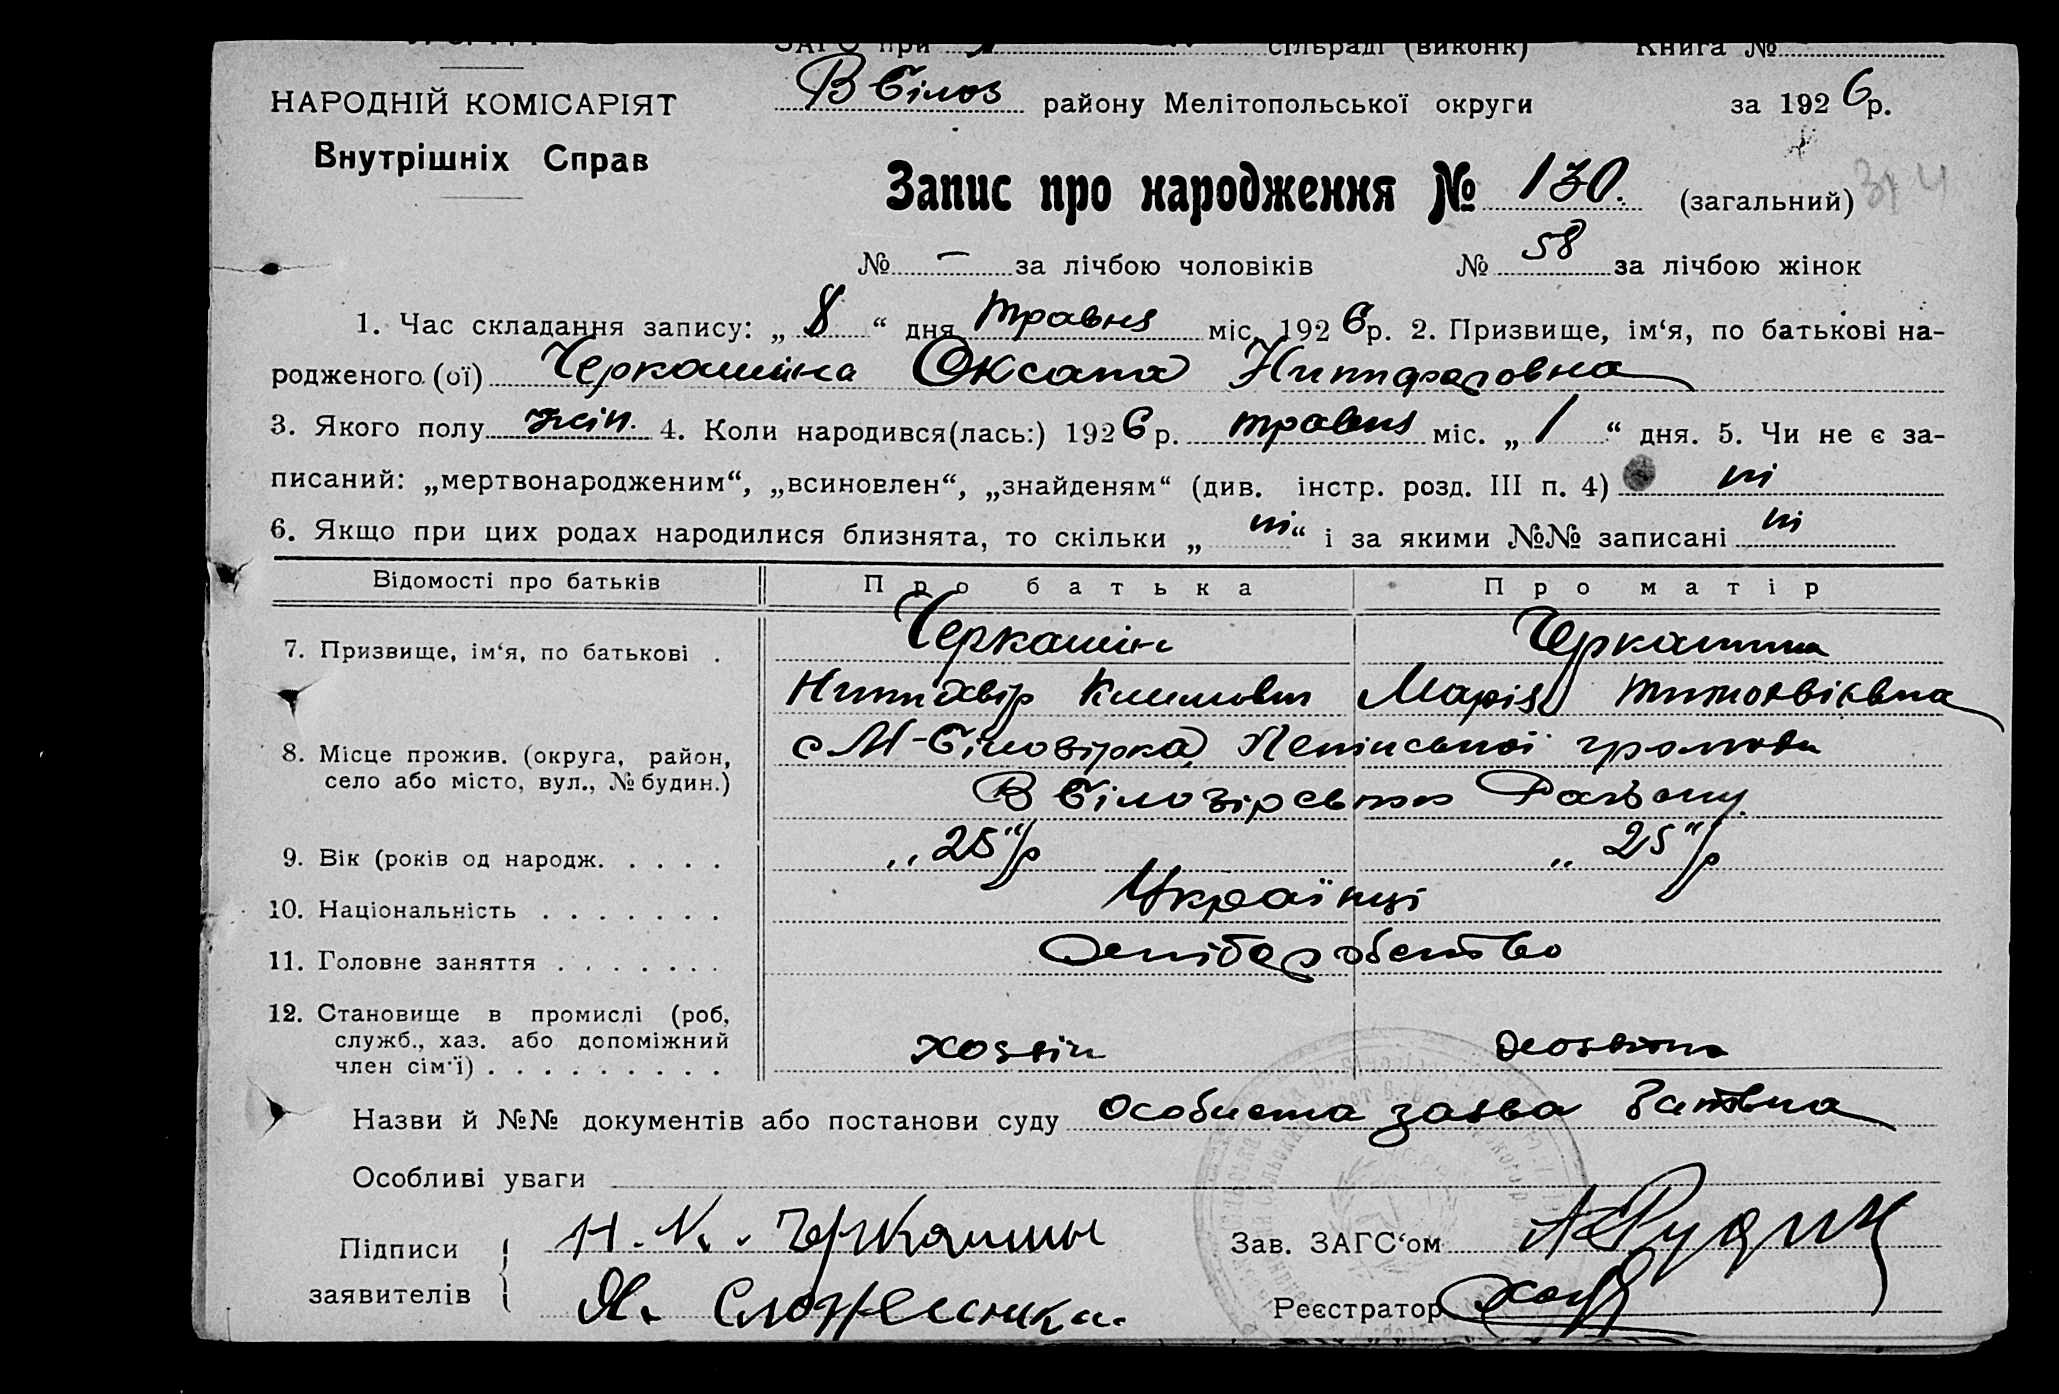 ЗАГС при сільраді (виконк) Книга №
В Білоз району Мелітопольської округи за 1926р.
НАРОДНІЙ КОМІСАРІЯТ
Внутрішніх Справ
Запис про народження № 130. (загальний)
№ – за лічбою чоловіків № 58 за лічбою жінок
1. Час складання запису: „8“ дня травня міс. 1926р. 2. Призвище, ім‘я, по батькові на-
родженого (ої) Черкашіна Оксана Нитифоровна
3. Якого полу жін. 4. Коли народився(лась:) 1926р. травня міс. „1“ дня. 5. Чи не є за-
писаний: „мертвонародженим“, „всиновлен“, „знайденям“ (див. інстр. розд. III п. 4) ні
6. Якщо при цих родах народилися близнята, то скільки „ні“ і за якими №№ записані ні
Відомості про батьків Про батька Про матір
7. Призвище, ім‘я, по батькові . Черкашін Черкашина
Климович Марія
8. Місце прожив. (округа, район, с М-Білозірка, Ленінської громади
село або місто, вул., № будин.) В Білозірського Району.
9. Вік (років од народж. . . . . „25“/р „25“/р
10. Національність . . . . . . . Українці
11. Головне заняття . . . . . . . Хліборобство
12. Становище в промислі (роб,
служб., хаз. або допоміжний хозяїн хозяйка
член сім‘ї) . . . . . . . . .
Назви й №№ документів або постанови суду Особиста заява
Особливі уваги
Підписи Н. К. Черкашин Зав. ЗАГС‘ом
заявителів Реєстратор